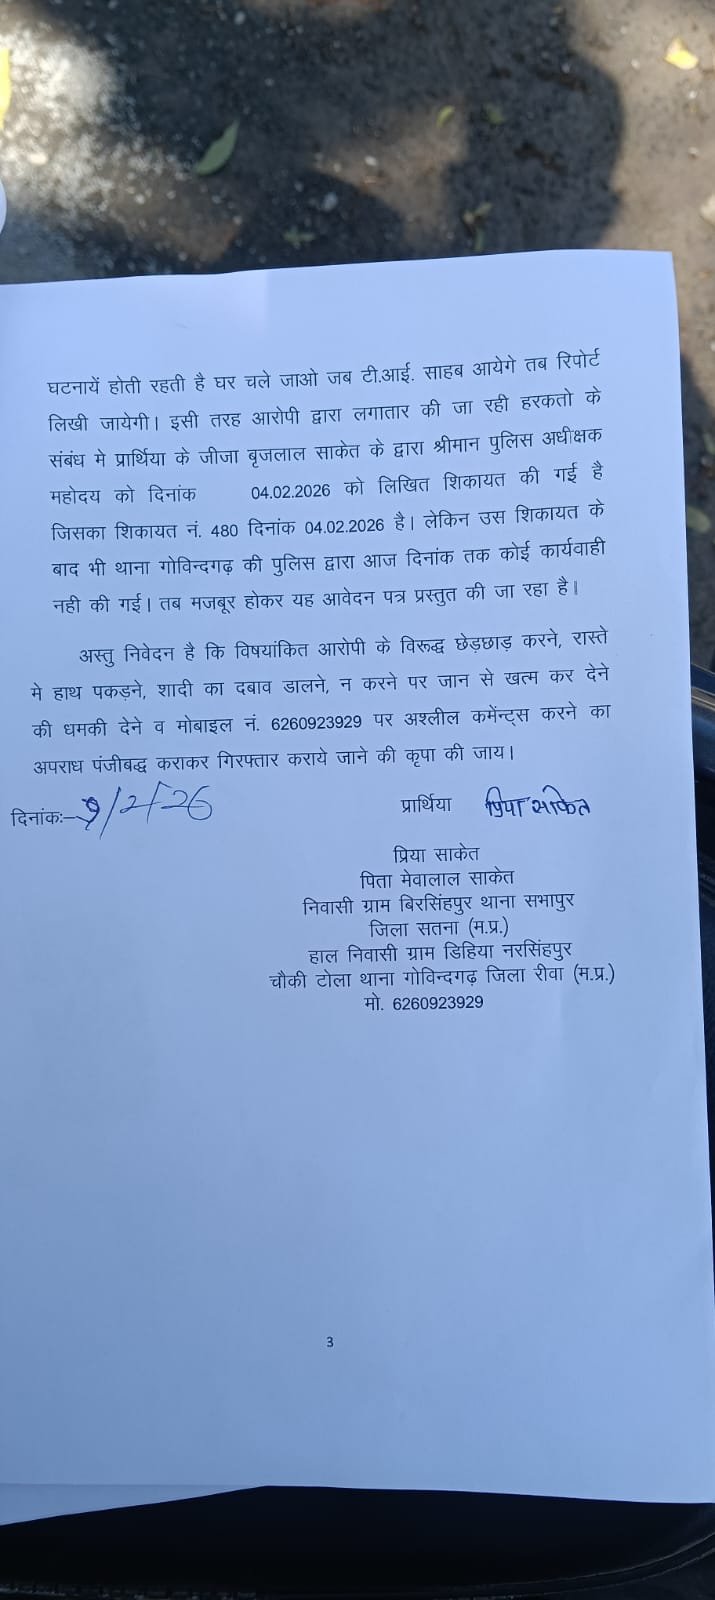 घटनायें होती रहती है घर चले जाओ जब टी.आई. साहब आयेगे तब रिपोर्ट
लिखी जायेगी। इसी तरह आरोपी द्वारा लगातार की जा रही हरकतो के
संबंध मे प्रार्थिया के जीजा बृजलाल साकेत के द्वारा श्रीमान पुलिस अधीक्षक
महोदय को दिनांक 04.02.2026 को लिखित शिकायत की गई है
जिसका शिकायत नं. 480 दिनांक 04.02.2026 है। लेकिन उस शिकायत के
बाद भी थाना गोविन्दगढ़ की पुलिस द्वारा आज दिनांक तक कोई कार्यवाही
नही की गई। तब मजबूर होकर यह आवेदन पत्र प्रस्तुत की जा रहा है।
अस्तु निवेदन है कि विषयांकित आरोपी के विरूद्ध छेड़छाड़ करने, रास्ते
मे हाथ पकड़ने, शादी का दबाव डालने, न करने पर जान से खत्म कर देने
की धमकी देने व मोबाइल नं. 6260923929 पर अश्लील कमेंन्ट्स करने का
अपराध पंजीबद्ध कराकर गिरफ्तार कराये जाने की कृपा की जाय।
दिनांकः– 9/2/26 प्रार्थिया प्रिया साकेत
प्रिया साकेत
पिता मेवालाल साकेत
निवासी ग्राम बिरसिंहपुर थाना सभापुर
जिला सतना (म.प्र.)
हाल निवासी ग्राम डिहिया नरसिंहपुर
चौकी टोला थाना गोविन्दगढ़ जिला रीवा (म.प्र.)
मो. 6260923929
3